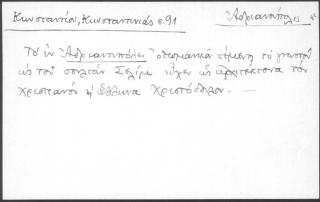 Κωνσταντίου, Κωνσταντινιάς σ.91
Ἀδριανούπολις
Τὸ ἐν Ἀδριανουπόλει ὀθωμανικὸν τέμενος τὸ γνωστὸν
ὡς τοῦ σουλτὰν Σελὶμ εἶχεν ὡς ἀρχιτέκτονα τὸν
χριστιανὸν ἢ Ἕλληνα Χριστόδουλον.